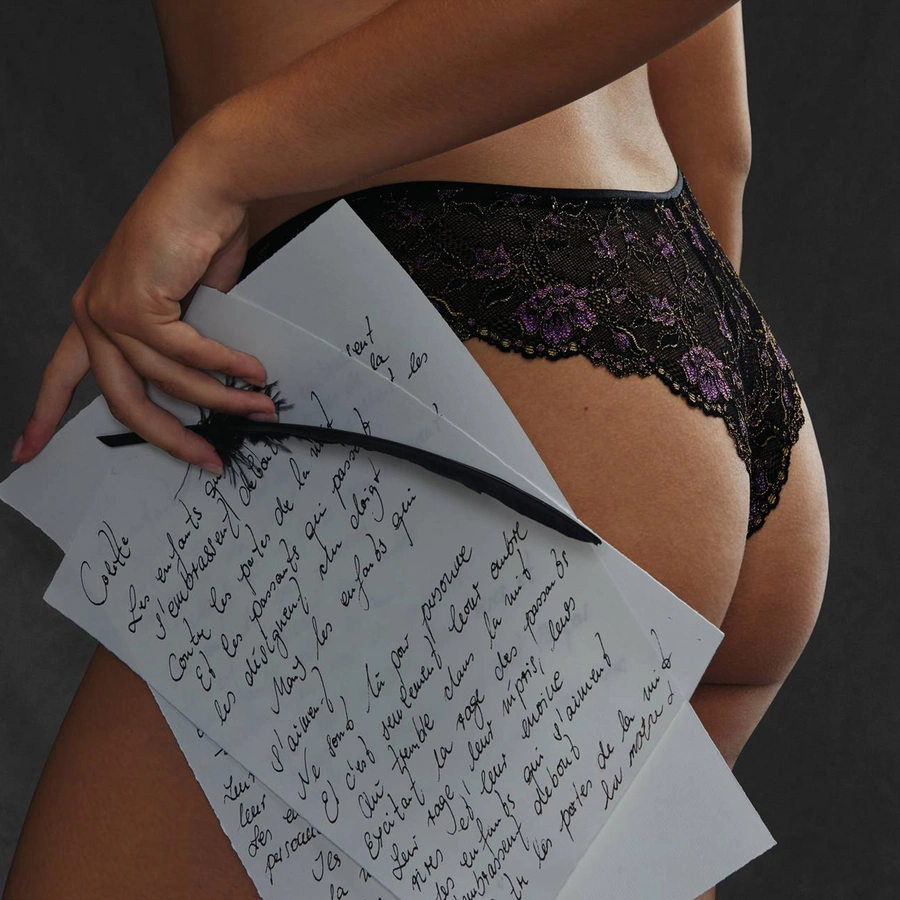 Colette
Les enfants qui
s'embrassent debout
Contre les portes de la nuit
Et les passants qui passent
les désignent du doigt
Mais les enfants qui
s'aiment
Ne sont là pour personne
Et c'est seulement leur ombre
Qui tremble dans la nuit
Excitant la rage des passants
Leur rage, leur mépris, leurs
rires et leur envie
les enfants qui s'aiment
embrassent debout
les portes de la nuit
la
les
Leur
leur
Les
personne
Ils
la